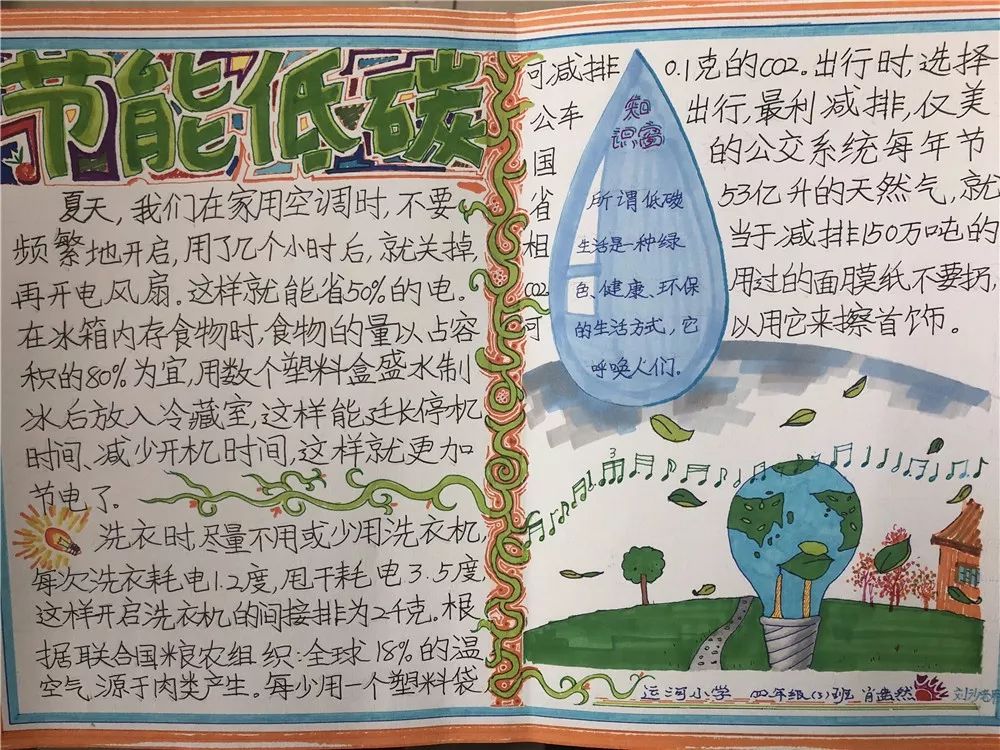 节能低碳
夏天，我们在家用空调时，不要
频繁地开启，用了几个小时后，就关掉，
再开电风扇。这样就能省50%的电。
在冰箱内存食物时，食物的量以占容
积的80%为宜，用数个塑料盒盛水制
冰后放入冷藏室，这样能延长停机
时间、减少开机时间，这样就更加
节电了。
洗衣时，尽量不用或少用洗衣机，
每次洗衣耗电1.2度，甩干耗电3.5度，
这样开启洗衣机的间接排为2千克。根
据联合国粮农组织：全球18%的温
空气，源于肉类产生。每少用一个塑料袋
可减排 0.1克的CO2。出行时，选择
公车 出行，最利减排，仅美
国 的公交系统每年节
省 53亿升的天然气，就
相 当于减排150万吨的
CO2 用过的面膜纸不要扔，
可 以用它来擦首饰。
知
识窗
所谓低碳
生活是一种绿
色、健康、环保
的生活方式，它
呼唤人们。
3
运河小学 四年级(3)班 肖